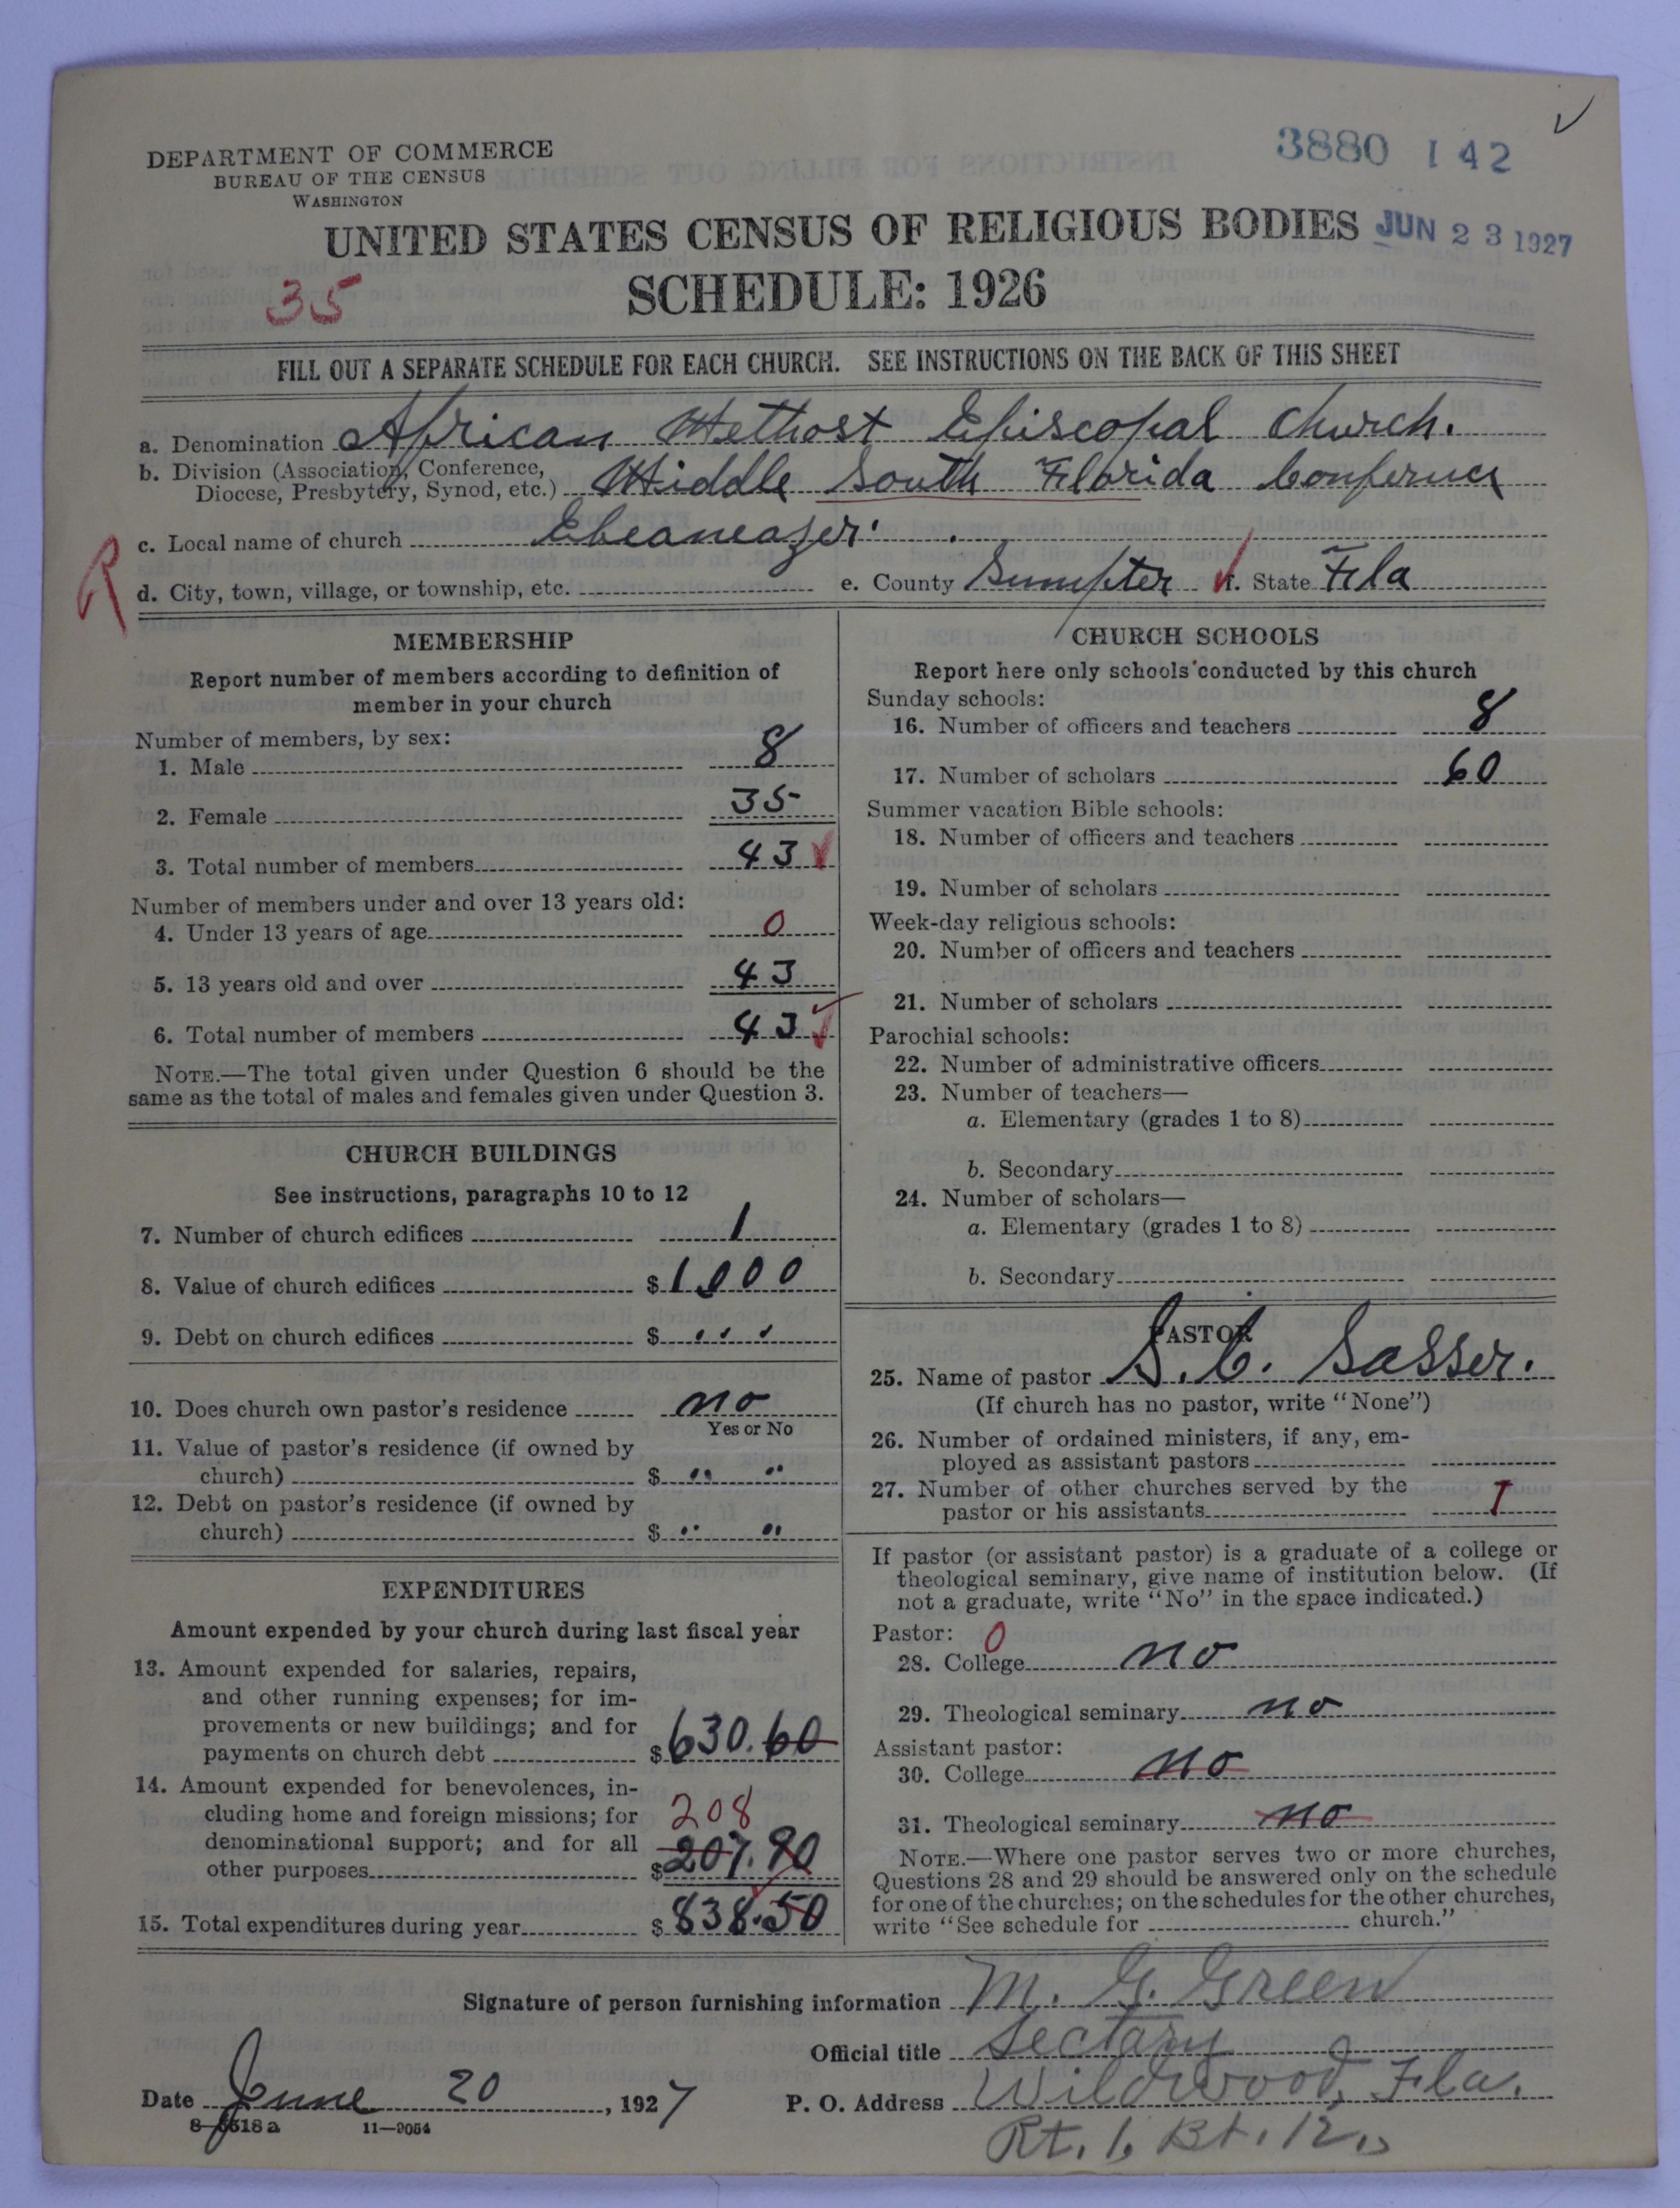 3880 142
DEPARTMENT OF COMMERCE
BUREAU OF THE CENSUS
WASHINGTON
UNITED STATES CENSUS OF RELIGIOUS BODIES JUN 23 1927
35
SCHEDULE: 1926
FILL OUT A SEPARATE SCHEDULE FOR EACH CHURCH. SEE INSTRUCTIONS ON THE BACK OF THIS SHEET
a. Denomination African Methost Episcopal Church.
b. Division (Association, Conference,
Diocese, Presbytery, Synod, etc.) Middle South Florida Conference
c. Local name of church Ebeaneazer
R
d. City, town, village, or township, etc. e. County Sumpter f. State Fla
MEMBERSHIP
Report number of members according to definition of
member in your church
Number of members, by sex:
1. Male 8
2. Female 35
3. Total number of members 43
Number of members under and over 13 years old:
4. Under 13 years of age 0
5. 13 years old and over 43
6. Total number of members 43
NOTE.—The total given under Question 6 should be the
same as the total of males and females given under Question 3.
CHURCH BUILDINGS
See instructions, paragraphs 10 to 12
7. Number of church edifices 1
8. Value of church edifices $1000
9. Debt on church edifices $
10. Does church own pastor's residence no
Yes or No
11. Value of pastor's residence (if owned by
church) $
12. Debt on pastor's residence (if owned by
church) $
EXPENDITURES
Amount expended by your church during last fiscal year
13. Amount expended for salaries, repairs,
and other running expenses; for im-
provements or new buildings; and for
payments on church debt $630.60
14. Amount expended for benevolences, in-
cluding home and foreign missions; for 208
denominational support; and for all
other purposes $207.90
15. Total expenditures during year $838.50
CHURCH SCHOOLS
Report here only schools conducted by this church
Sunday schools:
16. Number of officers and teachers 8
17. Number of scholars 60
Summer vacation Bible schools:
18. Number of officers and teachers
19. Number of scholars
Week-day religious schools:
20. Number of officers and teachers
21. Number of scholars
Parochial schools:
22. Number of administrative officers
23. Number of teachers—
a. Elementary (grades 1 to 8)
b. Secondary
24. Number of scholars—
a. Elementary (grades 1 to 8)
b. Secondary
PASTOR
25. Name of pastor S. C. Sasser.
(If church has no pastor, write "None")
26. Number of ordained ministers, if any, em-
ployed as assistant pastors
27. Number of other churches served by the
pastor or his assistants 1
If pastor (or assistant pastor) is a graduate of a college or
theological seminary, give name of institution below. (If
not a graduate, write "No" in the space indicated.)
Pastor: 0
28. College no
29. Theological seminary no
Assistant pastor:
30. College no
31. Theological seminary no
NOTE.—Where one pastor serves two or more churches,
Questions 28 and 29 should be answered only on the schedule
for one of the churches; on the schedules for the other churches,
write "See schedule for church."
Signature of person furnishing information M. G. Green
Official title Sectary
Date June 20, 1927 P. O. Address Wildwood, Fla.
8—5518a 11—9054
Rt. 1, Bt. 12